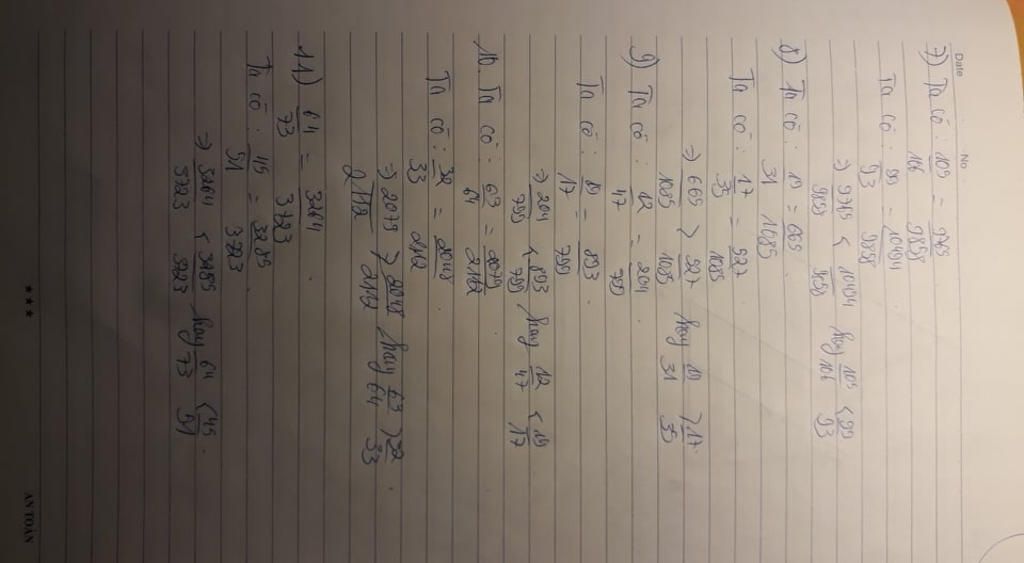 Date No
7) Ta có: 105/106 = 9765/9858
Ta có: 99/93 = 10494/9858
=> 9765/9858 < 10494/9858 hay 105/106 < 99/93
8) Ta có: 19/31 = 665/1085
Ta có: 17/35 = 527/1085
=> 665/1085 > 527/1085 hay 19/31 > 17/35
9) Ta có: 12/47 = 204/799
Ta có: 19/17 = 893/799
=> 204/799 < 893/799 hay 12/47 < 19/17
10. Ta có: 63/64 = 2079/2112
Ta có: 32/33 = 2048/2112
=> 2079/2112 > 2048/2112 hay 63/64 > 32/33
11) 64/73 = 3264/3723
Ta có: 45/51 = 3285/3723
=> 3264/3723 < 3285/3723 hay 64/73 < 45/51
★★★ AN TOÀN